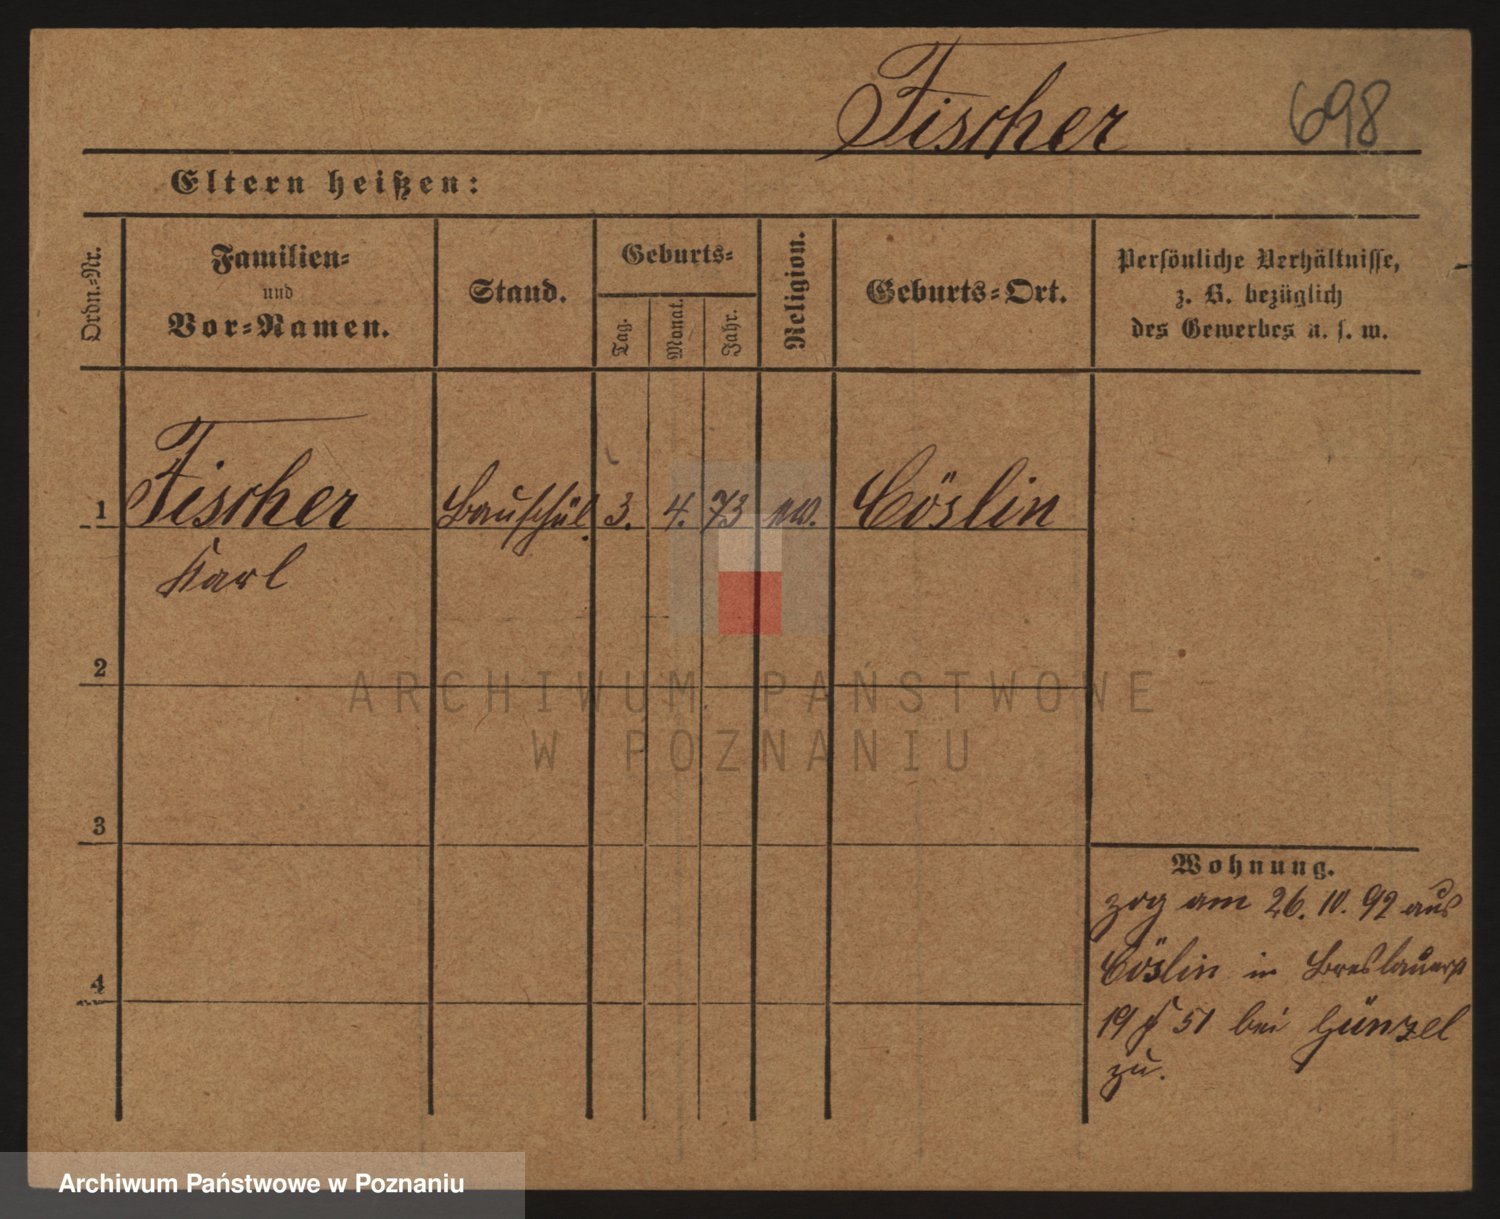 Fischer 698
Eltern heißen:
Ordn.-Nr.
Familien-
und
Vor-Namen.
Stand.
Geburts-
Tag.
Monat.
Jahr.
Religion.
Geburts-Ort.
Persönliche Verhältnisse,
z. B. bezüglich
des Gewerbes u. s. w.
1 Fischer Bauschül. 3. 4. 73 ev. Cöslin
Karl
2
3
4
Wohnung.
zog am 26. 10. 92 aus
Cöslin in Breslauerst
19 51 bei Günzel
zu.
ARCHIWUM PAŃSTWOWE
W POZNANIU
Archiwum Państwowe w Poznaniu